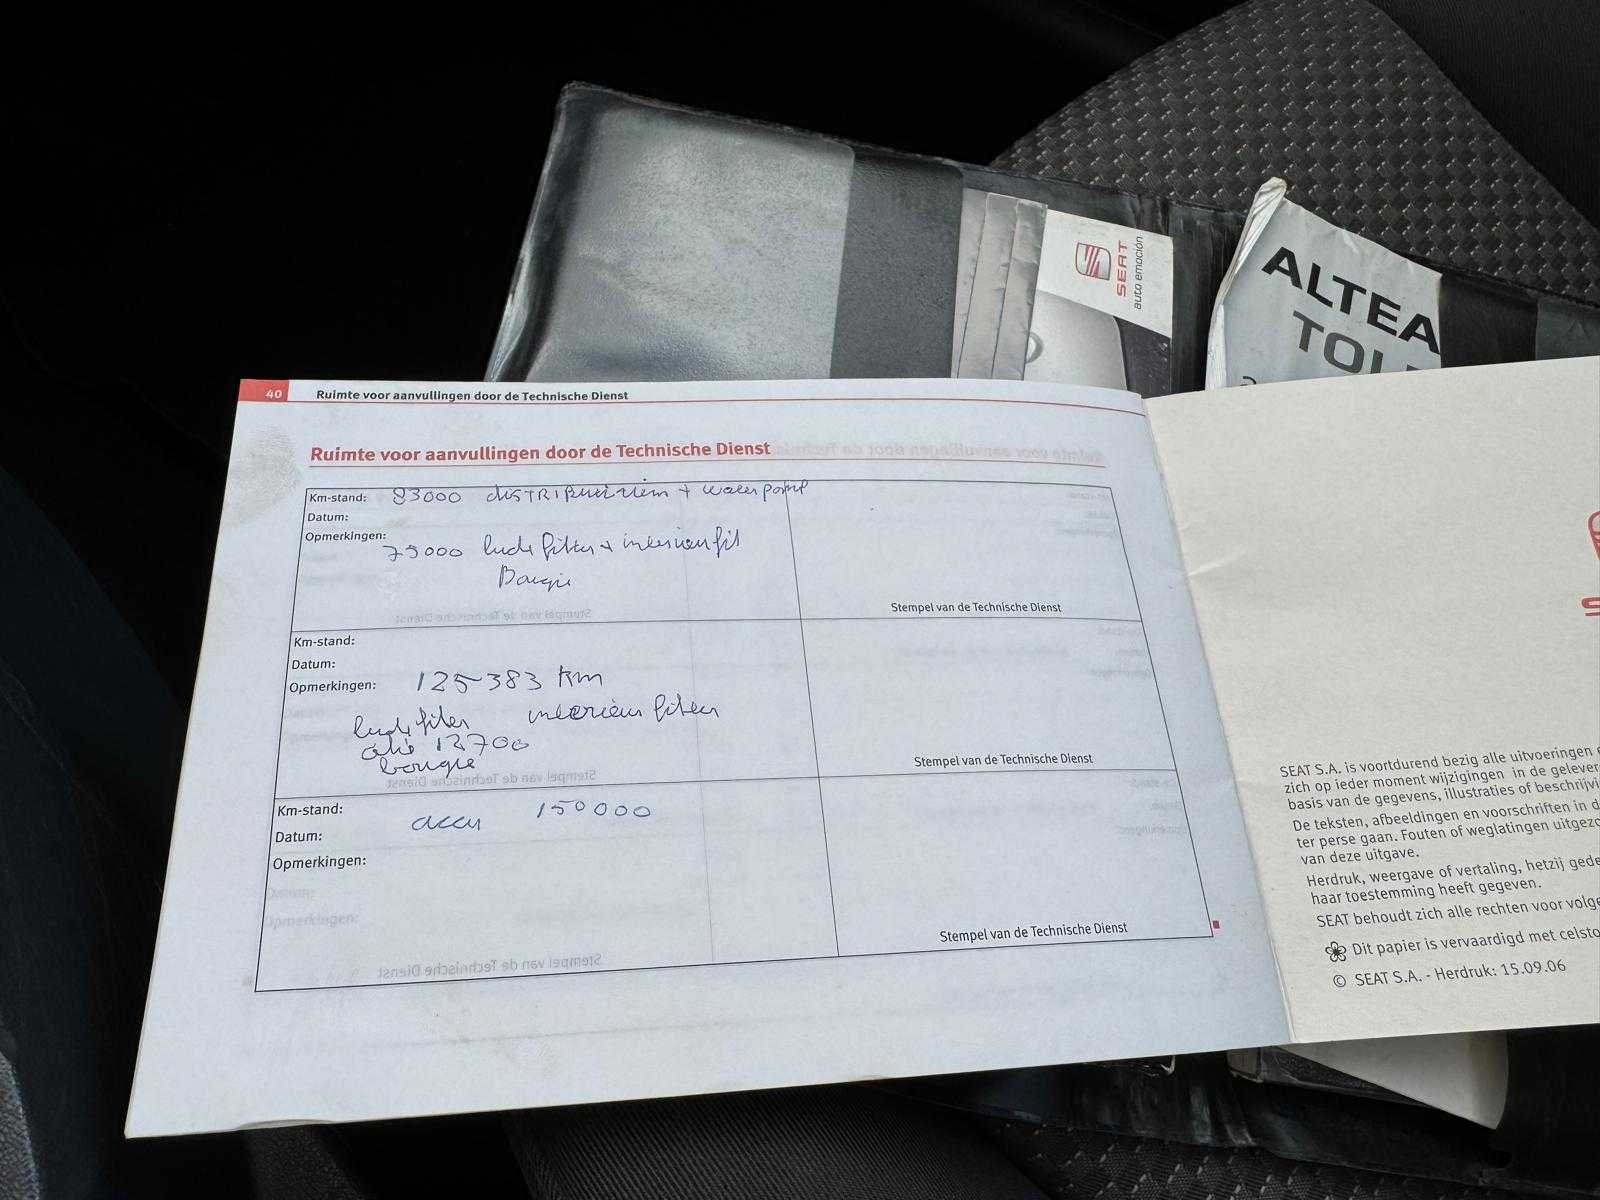 SEAT
auto emoción
ALTEA
40 Ruimte voor aanvullingen door de Technische Dienst
Ruimte voor aanvullingen door de Technische Dienst
Km-stand: 83000 + waterpomp
Datum:
Opmerkingen:
75000 lucht filter + interieur fil
Bougie
Stempel van de Technische Dienst
Km-stand:
Datum:
Opmerkingen: 125-383 km
lucht filter interieur filter
olie 12700
bougie
Stempel van de Technische Dienst
Km-stand:
accu 150000
Datum:
Opmerkingen:
Stempel van de Technische Dienst
SEAT S.A. is voortdurend bezig alle uitvoeringen
zich op ieder moment wijzigingen in de
basis van de gegevens, illustraties of
De teksten, afbeeldingen en voorschriften in
ter perse gaan. Fouten of weglatingen
van deze uitgave.
Herdruk, weergave of vertaling, hetzij
haar toestemming heeft gegeven.
SEAT behoudt zich alle rechten voor
Dit papier is vervaardigd met
© SEAT S.A. - Herdruk: 15.09.06